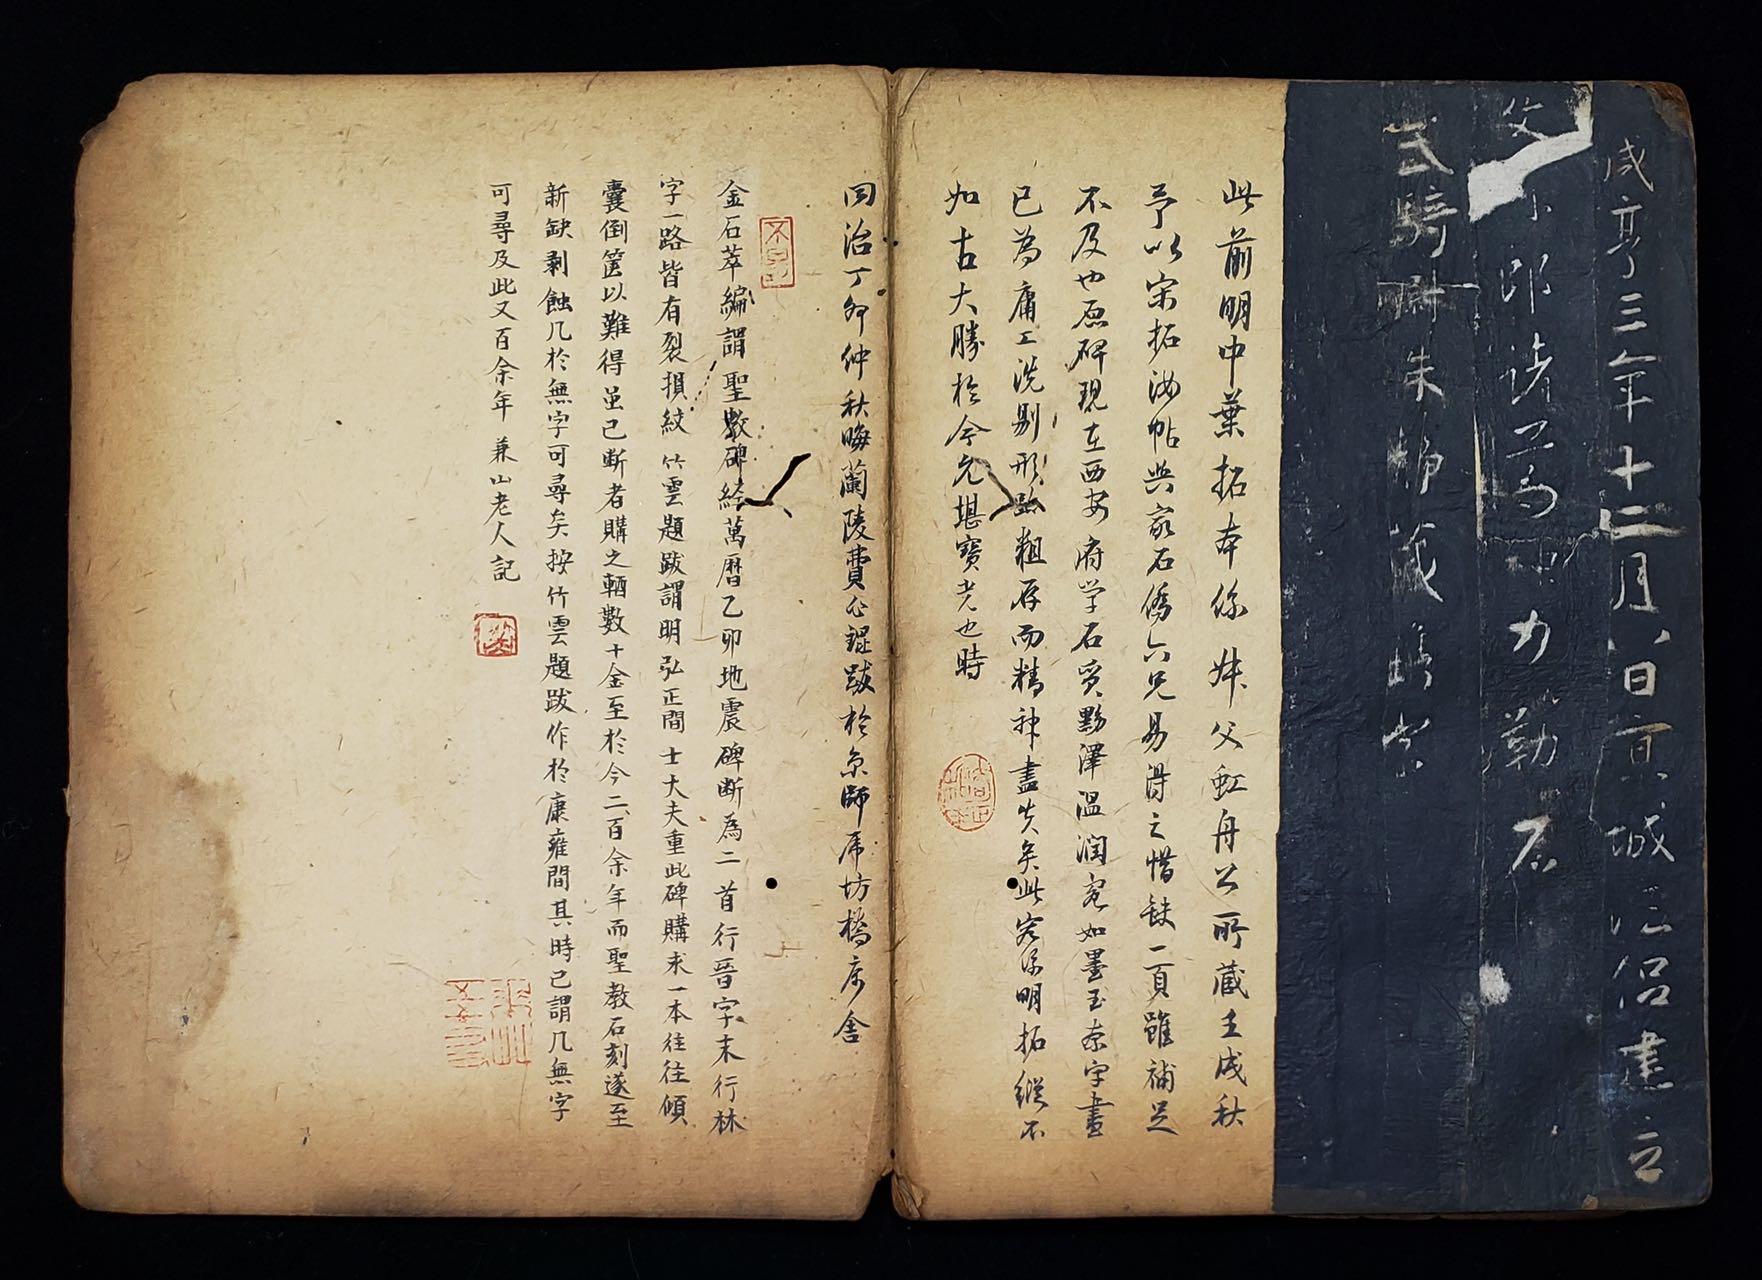 咸亨三年十二月八日京城法侶建立
文林郎諸葛神力勒石
武騎尉朱靜藏鐫字
此前明中葉拓本係 叔父虹舟公所藏壬戌秋
予以宋拓汝帖與家石僑六兄易得之惜缺一頁雖補足
不及也原碑現在西安府学石質黝澤温潤宛如墨玉奈字畫
已為庸工洗剔形跡粗存而精神盡失矣此客係明拓縱不
如古大勝於今允堪寶光也時
同治丁卯仲秋晦蘭陵費 跋於京師虎坊橋 舍
金石萃編謂聖教碑經萬曆乙卯地震碑断為二首行晉字末行林
字一路皆有裂損紋竹雲題跋謂明弘正間士大夫重此碑購求一本往往傾
囊倒篋以難得虽已断者購之輙數十金至於今二百余年而聖教石刻遂至
新缺剥蝕几於無字可尋矣按竹雲題跋作於康雍間其時已謂几無字
可尋及此又百余年 兼山老人記